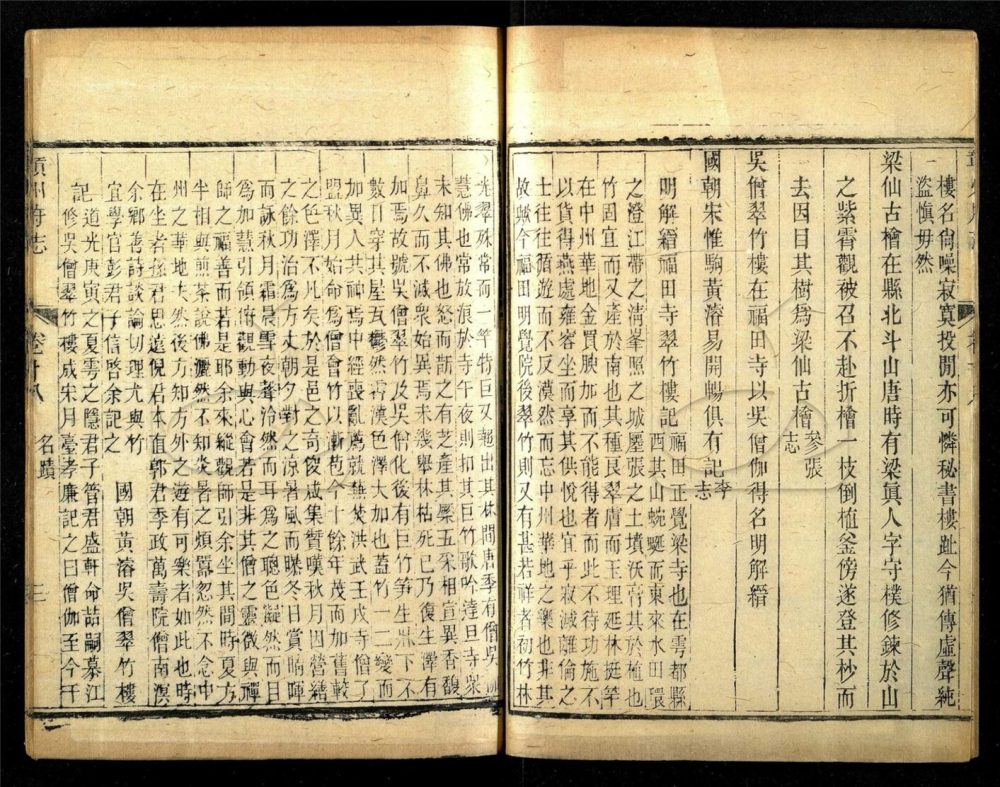 樓名尚噪寂寞投閒亦可憐秘書樓趾今猶傳虛聲純
盜愼毋然
梁仙古檜在縣北斗山唐時有梁眞人字守樸修鍊於山
之紫霄觀被召不赴折檜一枝倒植釜傍遂登其杪而
去因目其樹爲梁仙古檜參張志
吳僧翠竹樓在福田寺以吳僧伽得名明解縉
國朝宋惟駒黃濬易開暢俱有記李志
明解縉福田寺翠竹樓記
福田正覺梁寺也在雩都縣
西其山蜿蜒而東來水田環
之澄江帶之淸峯照之城屬張之土墳沃膏其於植也
竹固宜而又產於南也其種艮翠膚而玉理延林挺竿
在中州華地金買腴加而不能得者而此不待功施不
以貨得燕處雍容坐而享其供悅也宜乎寂滅離倫之
士往往循遊而不反漠然而忘中州華地之樂也非其
故歟今福田明覺院後翠竹則又有甚若祥者初竹林
光翠殊常而一竿特巨又超出其林間唐季有僧吳
慧佛也常放浪於寺午夜則扣其巨竹歌吟達旦寺衆
未知其佛也怒而訢之有之產其櫱五采相宣異香馥
鼻久而不滅衆始異焉未幾舉林枯死已乃復生澤有
加焉故號吳僧翠竹及吳伽化後有巨竹笋生牀下不
數日穿其屋瓦鬱然雲漢色澤大加也蓋竹一二變而
加異人共神焉中經喪亂爲就蕪焚洪武壬戌寺僧了
盟秋月始命爲僧會竹以漸苞今十餘年茂而加舊較
之色澤不凡矣於是邑之奇俊咸集贊嘆秋月因營繕
之餘功治爲方丈朝夕對之涼暑風而曝冬日賞晦暉
而詠秋月霜晨雪夜聲泠然而耳爲之聰色凝然而目
爲加慧引領府觀動與心會若是是非其僧之靈徵與禪
師之福善而若是耶余來縱觀師引余坐其間時夏方
半相與煎茶說佛灑然不知炎暑之煩囂忽然不念中
州之華地夫然後方知方外之遊有可樂者如此也時
在坐者孫君思遠倪君本値郭君季政萬壽院僧南溟
余鄉善詩談論切理尤與竹
宜學官彭君子信啓余記之
國朝黃濬吳僧翠竹樓
記道光庚寅之夏雩之隱君子管君盛軒命喆嗣慕江
修吳僧翠竹樓成宋月臺孝廉記之曰僧伽至今千
贛州府志
卷十八
名蹟
三